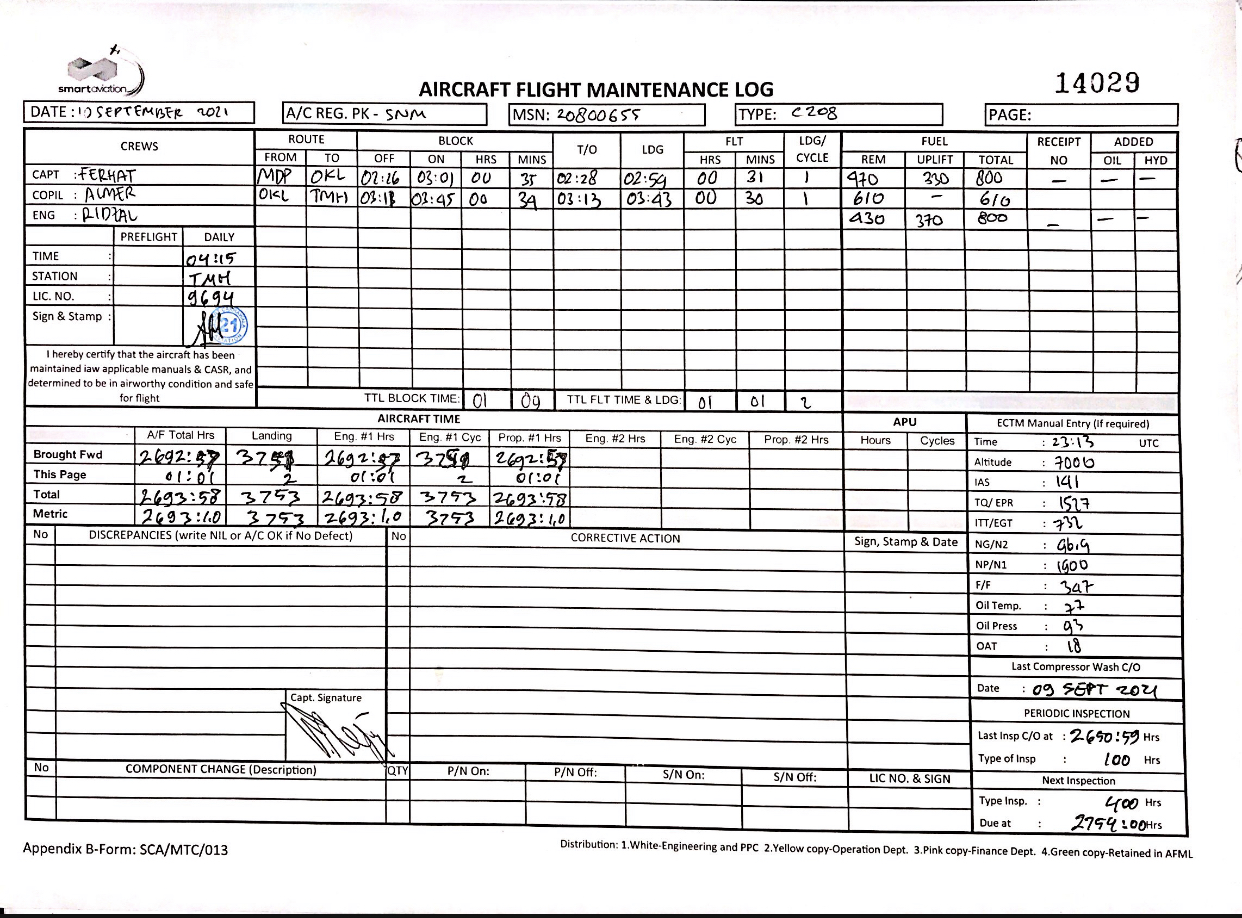 smartaviation
AIRCRAFT FLIGHT MAINTENANCE LOG
14029
DATE : 10 SEPTEMBER 2021 A/C REG. PK - SNM MSN: 20800655 TYPE: C208 PAGE:
CREWS ROUTE BLOCK T/O LDG FLT LDG/ CYCLE FUEL RECEIPT NO ADDED
FROM TO OFF ON HRS MINS HRS MINS REM UPLIFT TOTAL OIL HYD
CAPT : FERHAT MDP OKL 02:26 03:01 00 35 02:28 02:59 00 31 1 470 330 800 — — —
COPIL : ALMER OKL TMH 03:11 03:45 00 34 03:13 03:43 00 30 1 610 - 610
ENG : RIDZAL 430 370 800 — — —
PREFLIGHT DAILY
TIME : 04:15
STATION : TMH
LIC. NO. : 9694
Sign & Stamp : 21
I hereby certify that the aircraft has been
maintained iaw applicable manuals & CASR, and
determined to be in airworthy condition and safe
for flight
TTL BLOCK TIME: 01 09 TTL FLT TIME & LDG: 01 01 2
AIRCRAFT TIME APU ECTM Manual Entry (If required)
A/F Total Hrs Landing Eng. #1 Hrs Eng. #1 Cyc Prop. #1 Hrs Eng. #2 Hrs Eng. #2 Cyc Prop. #2 Hrs Hours Cycles
Brought Fwd 2692:57 3751 2692:57 3751 2692:57
This Page 01:01 2 01:01 2 01:01
Total 2693:58 3753 2693:58 3753 2693:58
Metric 2693:1,0 3753 2693:1,0 3753 2693:1,0
Time : 23:13 UTC
Altitude : 7000
IAS : 141
TQ/ EPR : 1527
ITT/EGT : 732
NG/N2 : 96.9
NP/N1 : 1900
F/F : 347
Oil Temp. : 77
Oil Press : 93
OAT : 18
No DISCREPANCIES (write NIL or A/C OK if No Defect) No CORRECTIVE ACTION Sign, Stamp & Date
Last Compressor Wash C/O
Date : 09 SEPT 2021
Capt. Signature
PERIODIC INSPECTION
Last Insp C/O at : 2650:59 Hrs
Type of Insp : 100 Hrs
Next Inspection
Type Insp. : 400 Hrs
Due at : 2754:00 Hrs
No COMPONENT CHANGE (Description) QTY P/N On: P/N Off: S/N On: S/N Off: LIC NO. & SIGN
Appendix B-Form: SCA/MTC/013
Distribution: 1.White-Engineering and PPC 2.Yellow copy-Operation Dept. 3.Pink copy-Finance Dept. 4.Green copy-Retained in AFML